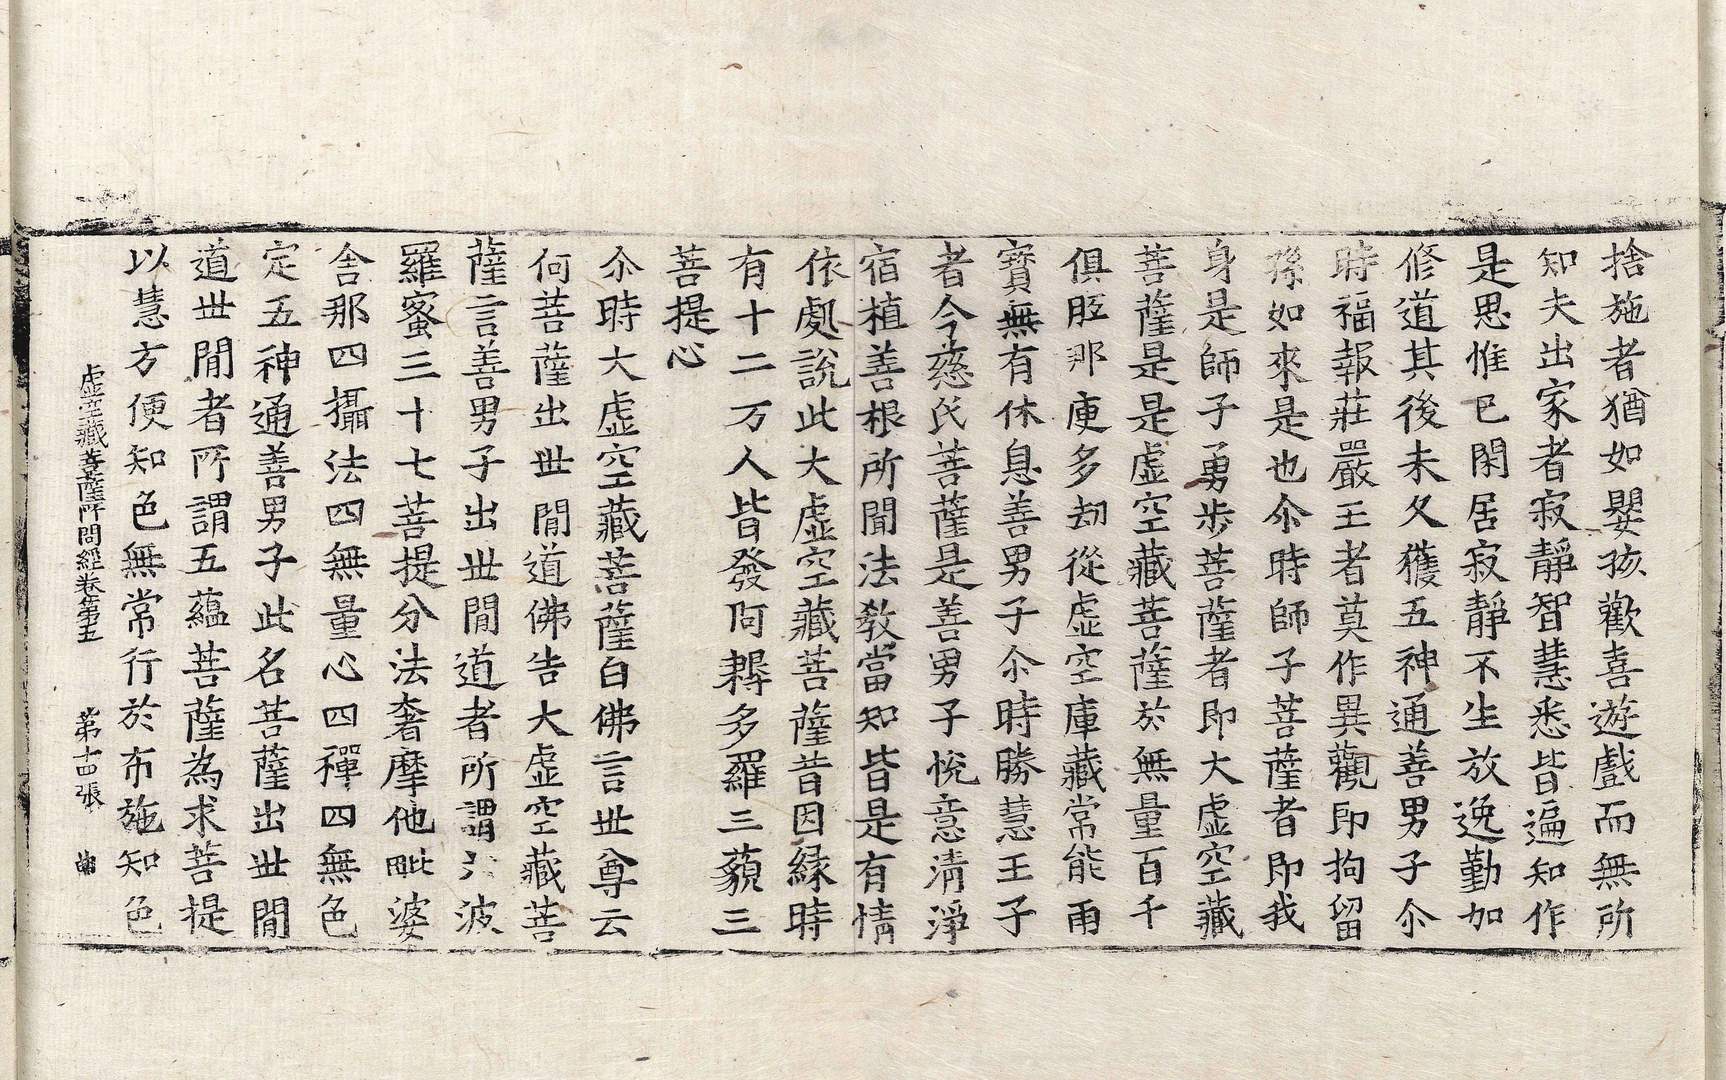 捨施者猶如嬰孩歡喜遊戲而無所
知夫出家者寂靜智慧悉皆遍知作
是思惟已閑居寂靜不生放逸勤加
修道其後未久獲五神通善男子尒
時福報莊嚴王者莫作異觀即拘留
孫如來是也尒時師子菩薩者即我
身是師子勇步菩薩者即大虛空藏
菩薩是是虛空藏菩薩於無量百千
俱胝那庾多劫從虛空庫藏常能雨
寶無有休息善男子尒時勝慧王子
者今慈氏菩薩是善男子悅意清淨
宿植善根所聞法教當知皆是有情
依處說此大虛空藏菩薩昔因緣時
有十二万人皆發阿耨多羅三藐三
菩提心
尒時大虛空藏菩薩白佛言世尊云
何菩薩出世間道佛告大虛空藏菩
薩言善男子出世間道者所謂六波
羅蜜三十七菩提分法奢摩他毗婆
舍那四攝法四無量心四禪四無色
定五神通善男子此名菩薩出世間
道世間者所謂五蘊菩薩為求菩提
以慧方便知色無常行於布施知色
虛空藏菩薩所問經卷第五 第十四張